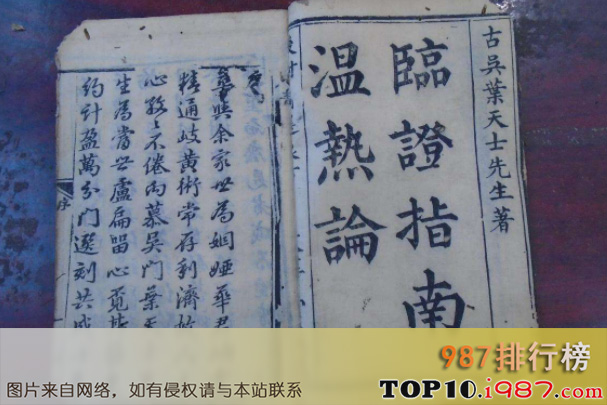 古吳葉天士先生著
臨證指南
溫熱論
序
華君與余家世為姻婭
精通岐黃術常存利濟
心孜孜不倦而慕吳門葉天
生為當世盧扁留心覓其
約計盈萬分門選刻共成
序
987排行榜
图片来自网络，如有侵权请与本站联系
TOP10.1987.com